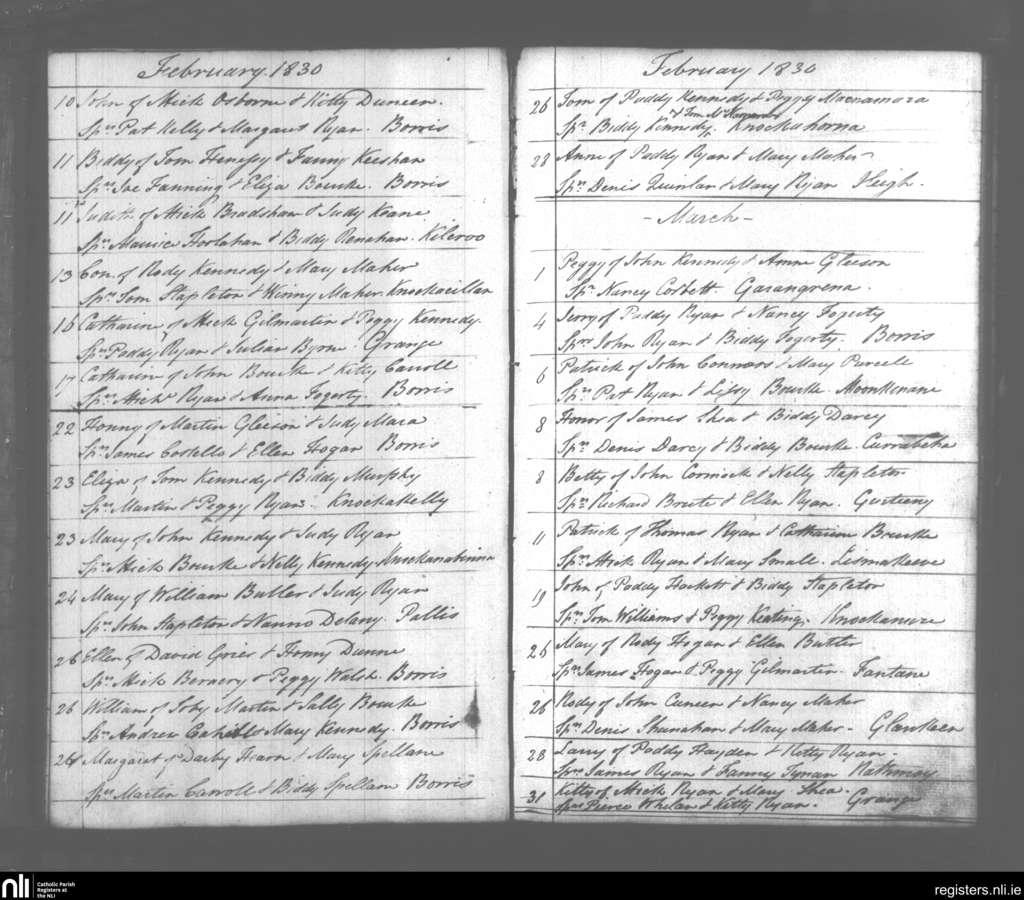 February 1830
10 John of Mick Osborne & Kitty Duneen.
Sprs Pat Kelly & Margaret Ryan. Borris
11 Biddy of Tom Henesy & Fanny Keeshan
Sprs Joe Fanning & Eliza Bourke. Borris
11 Judith of Mick Bradshaw & Judy Keane
Sprs Maurice Hoolahan & Biddy Renehan. Kileroo
13 Con. of Rody Kennedy & Mary Maher
Sprs Tom Stapleton & Winny Maher. Knockacillan
16 Catharin of Mick Gilmartin & Peggy Kennedy.
Sprs Paddy Ryan & Julian Byrne. Grange
17 Catharin of John Bourke & Kitty Carroll
Sprs Mick Ryan & Anna Fogerty. Borris
22 Honny of Martin Gleeson & Judy Mara
Sprs James Costello & Ellen Hogan Borris
23 Eliza of Tom Kennedy & Biddy Murphy
Sprs Martin & Peggy Ryan. Knockakelly
23 Mary of John Kennedy & Judy Ryan
Sprs Mick Bourke & Nelly Kennedy
24 Mary of William Butler & Judy Ryan
Sprs John Stapleton & Nanno Delany. Pallis
26 Ellen of David Grier & Honny Dunne
Sprs Mick & Peggy Walsh. Borris
26 William of Toby Martin & Sally Bourke
Sprs Andrew Cahill & Mary Kennedy. Borris
26 Margaret of Darby Hearn & Mary Spellane
Sprs Martin Carroll & Biddy Spellane Borris
February 1830
26 Tom of Paddy Kennedy & Peggy Macnamara
& Tom McNamara
Spr Biddy Kennedy. Knockahorna
28 Anne of Paddy Ryan & Mary Maher
Sprs Denis Quinlan & Mary Ryan Ileigh.
- March -
1 Peggy of John Kennedy & Anne Gleeson
Spr Nancy Corbett. Garangrena.
4 Jerry of Paddy Ryan & Nancy Fogerty
Sprs John Ryan & Biddy Fogerty. Borris
6 Patrick of John Connors & Mary Purcell
Sprs Pat Ryan & Bourke. Moonkenane
8 Honor of James Shea & Biddy Darcy
Sprs Denis Darcy & Biddy Bourke. Currabeha
8 Betty of John Cormick & Nelly Stapleton
Sprs Richard & Ellen Ryan. Gurteeny
11 Patrick of Thomas Ryan & Catharin Bourke
Sprs Mick Ryan & Mary Small. Lismakeeve
19 John of Paddy Hackett & Biddy Stapleton
Sprs Tom Williams & Peggy Keating. Knockanure
26 Mary of Rody Hogan & Ellen Butler
Sprs James Hogan & Peggy Gilmartin. Fantane
26 Rody of John Cuneen & Nancy Maher
Sprs Denis Shanahan & Mary Maher. Glankeen
28 Larry of Paddy Hayden & Kitty Ryan.
Sprs James Ryan & Fanny Tynan Rathmoy
31 Kitty of Mick Ryan & Mary Shea.
Sprs Pierce Whelan & Kitty Ryan. Grange
nli Catholic Parish
Registers at
the NLI
registers.nli.ie